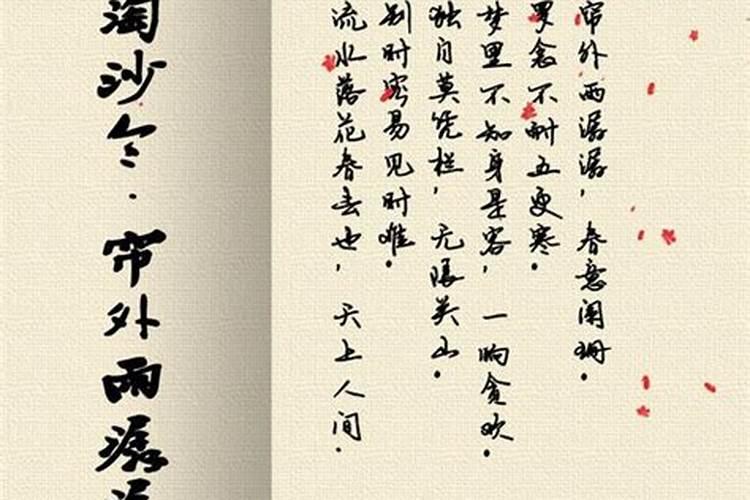 淘沙令·帘外雨潺潺
帘外雨潺潺，春意阑珊。
罗衾不耐五更寒。
梦里不知身是客，一晌贪欢。
独自莫凭栏，无限关山。
别时容易见时难。
流水落花春去也，天上人间。